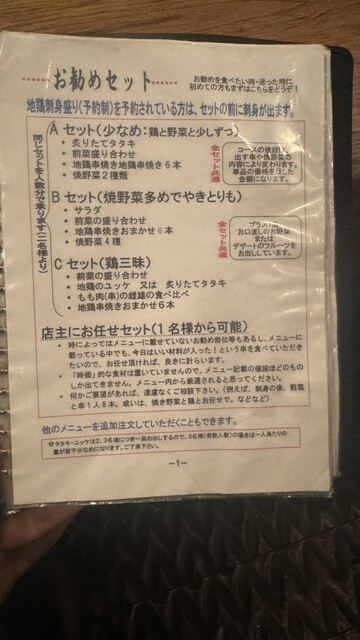 お勧めセット
お勧めを食べたい時・迷った時に
初めての方もまずはこちらをどうぞ！
地鶏刺身盛り(予約制)を予約されている方は、セットの前に刺身が出ます。
同じセットを人数分で承ります(二名様より)
A セット(少なめ：鶏と野菜と少しずつ)
• 炙りたてタタキ
• 前菜盛り合わせ
• 地鶏串焼き地鶏串焼き６本
• 焼野菜２種類
全セット共通
コースの値段は、
出す串や焼野菜の
内容により変わります。
単品の価格を足した
金額になります。
B セット(焼野菜多めでやきとりも)
• サラダ
• 前菜の盛り合わせ
• 地鶏串焼きおまかせ６本
• 焼野菜４種
全セット共通
プラス１品
お口直しのお野菜
または
デザートのフルーツを
お出ししています。
C セット(鶏三昧)
• 前菜の盛り合わせ
• 地鶏のユッケ 又は 炙りたてタタキ
• もも肉(串)の雌雄の食べ比べ
• 地鶏串焼きおまかせ６本
店主にお任せセット(１名様から可能)
• 時によってはメニューに載せていないお勧め部位等もあるし、メニューに
載っている中でも、今日はいい材料が入った！という串を食べていただき
たいので、お任せ頂ければ、良きに計らいます。
• 「時価」的な食材は置いていませんので、メニュー記載の値段ほどのもの
しか出てきません。メニュー内から厳選されると思ってください。
• 何かご要望があれば、遠慮なくご相談下さい。(例えば、刺身の後、前菜
と串１人８本。或いは、焼き野菜と鶏とお任せで、などなど)
他のメニューを追加注文していただくこともできます。
☆タタキ・ユッケは２、３名様につき一皿お出しするので、３名様(奇数人数)の場合は一人当たりの
量が若干少なめになります。ご了承下さい。
－1－